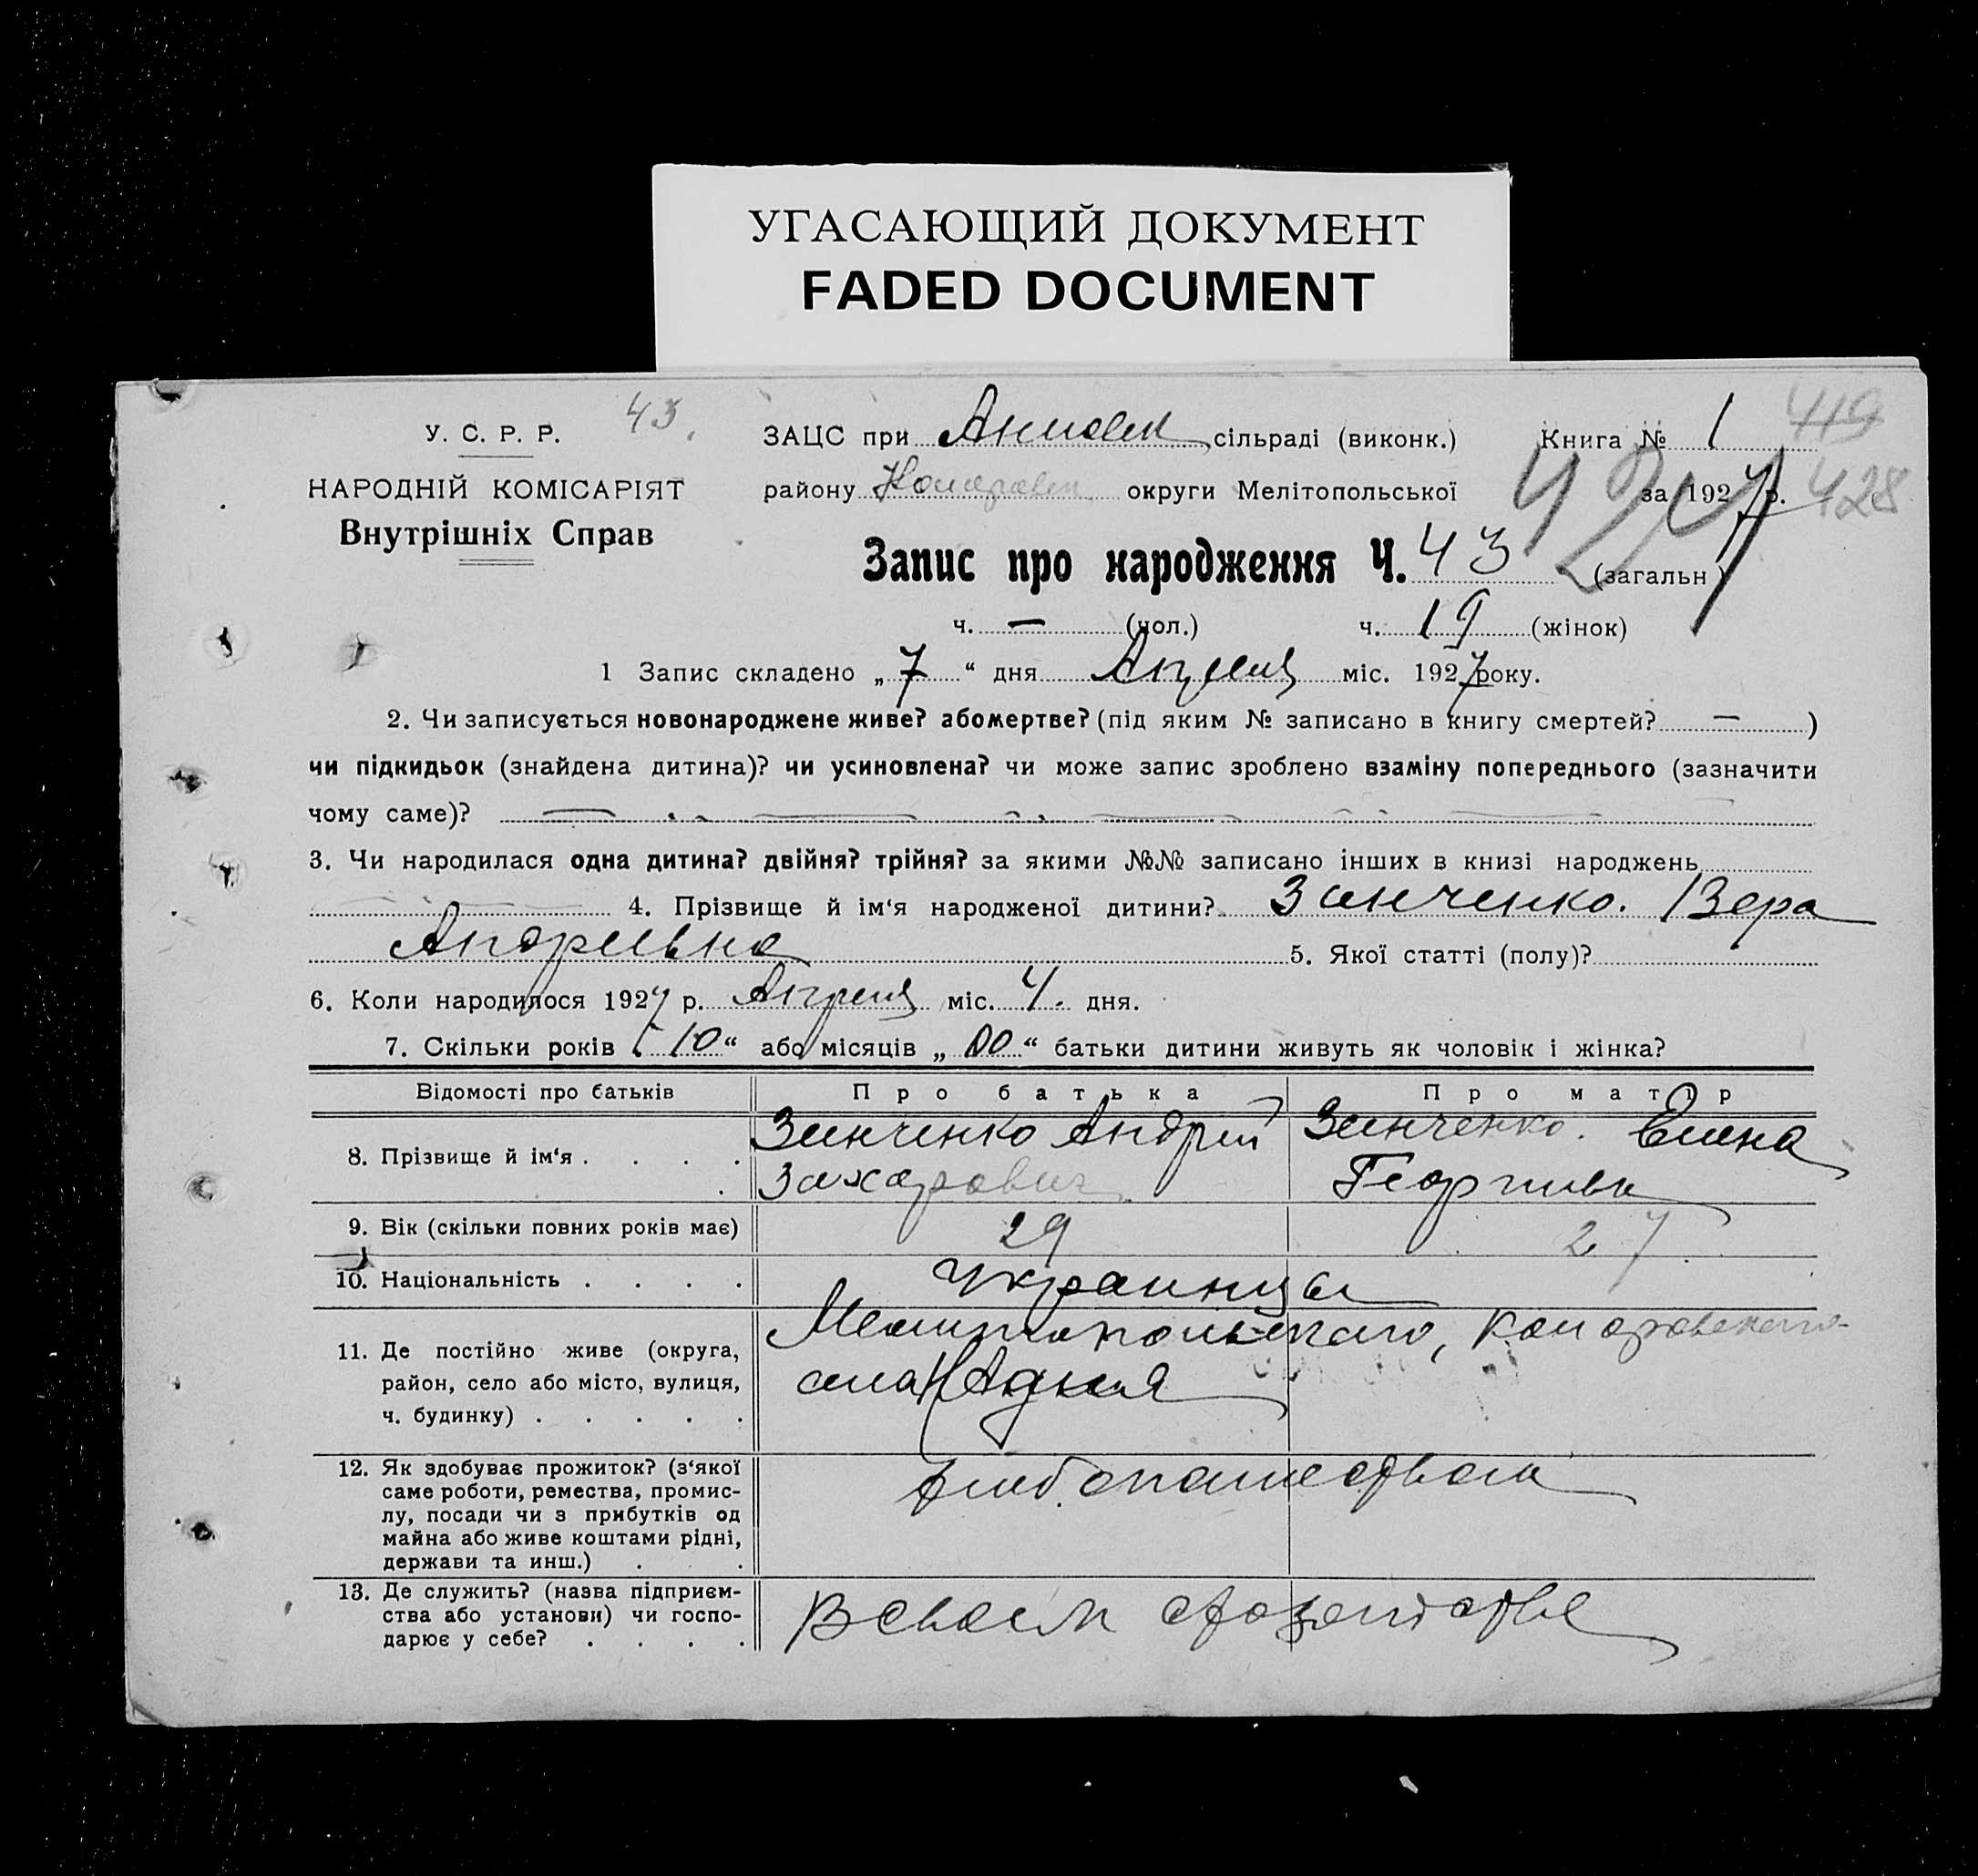 УГАСАЮЩИЙ ДОКУМЕНТ
FADED DOCUMENT
У. С. Р. Р.
43.
ЗАЦС при сільраді (виконк.)
Книга № 1
419
НАРОДНІЙ КОМІСАРІЯТ
району округи Мелітопольської
за 1927 р.
428
Внутрішніх Справ
Запис про народження Ч. 43 (загальн)
ч. — (чол.) ч. 19 (жінок)
1 Запис складено „7“ дня Апреля міс. 1927 року.
2. Чи записується новонароджене живе? або мертве? (під яким № записано в книгу смертей? — )
чи підкидьок (знайдена дитина)? чи усиновлена? чи може запис зроблено взаміну попереднього (зазначити
чому саме)?
3. Чи народилася одна дитина? двійня? трійня? за якими №№ записано інших в книзі народжень
4. Прізвище й ім‘я народженої дитини? Зинченко. Вера
Андреевна 5. Якої статті (полу)?
6. Коли народилося 1927 р. Апреля міс. 4. дня.
7. Скільки років „10“ або місяців „00“ батьки дитини живуть як чоловік і жінка?
Відомості про батьків Про батька Про матір
8. Прізвище й ім‘я . . . . Зинченко Андрей Захарович Зинченко. Елена Георгивн
9. Вік (скільки повних років має) 29 27
10. Національність . . . . Украинцы
11. Де постійно живе (округа,
район, село або місто, вулиця,
ч. будинку) . . . . .
Мелитопольского,
села
12. Як здобуває прожиток? (з‘якої
саме роботи, ремества, промис-
лу, посади чи з прибутків од
майна або живе коштами рідні,
держави та инш.) . .
хлебопашеством
13. Де служить? (назва підприєм-
ства або установи) чи госпо-
дарює у себе? . . . .
В своем хозяйстве